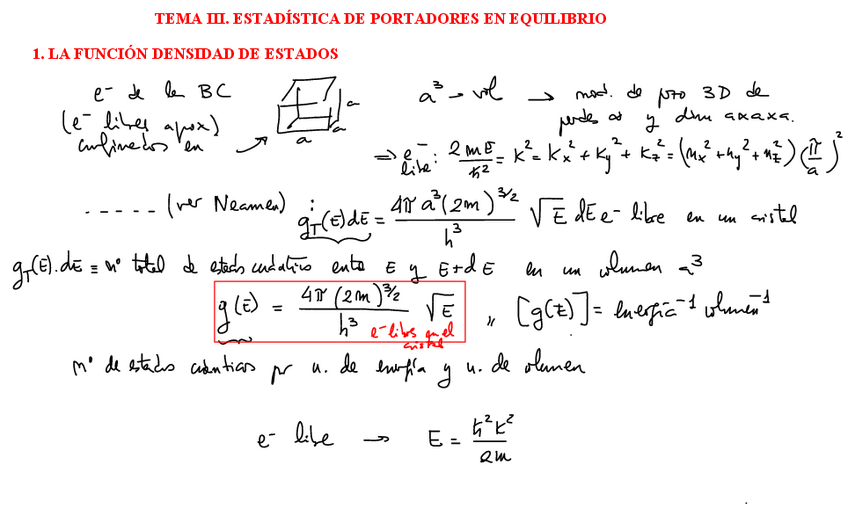 TEMA III. ESTADÍSTICA DE PORTADORES EN EQUILIBRIO
1. LA FUNCIÓN DENSIDAD DE ESTADOS
e⁻ de la BC
(e⁻ libres aprox)
confinados en
a
a
a
a³ → vol → mod. de pozo 3D de
paredes ∞ y dim axaxa.
⇒ e⁻ libre: 2mE/ħ² = K² = Kx² + Ky² + Kz² = (nx² + ny² + nz²) (π/a)²
----- (ver Neamen) : g_T(E)dE = 4π a³ (2m)^3/2 / h³ √E dE e⁻ libre en un cristal
g_T(E).dE ≡ nº total de estados cuánticos entre E y E+dE en un volumen a³
g(E) = 4π (2m)^3/2 / h³ √E ,, [g(E)] = energía⁻¹ volumen⁻¹
e⁻ libres en el
cristal
nº de estados cuánticos por u. de energía y u. de volumen
e⁻ libre → E = ħ²K²/2m